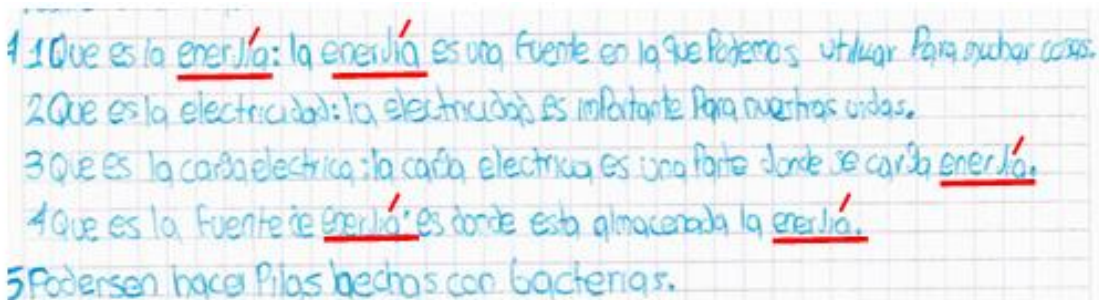 1 Que es la enerJía: la enerJía es una fuente en la que Podemos utilizar Para muchas cosas.
2 Que es la electricidad: la electricidad es imPortante Para nuestras vidas.
3 Que es la carga electrica: la carga electrica es una Parte donde se carga enerJía.
4 Que es la fuente de enerJía: es donde esta almacenada la enerJía.
5 Podersen hacer Pilas hechas con bacterias.